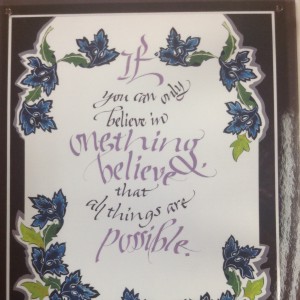 If
you can only
believe in
onething,
believe
that
all things are
possible.